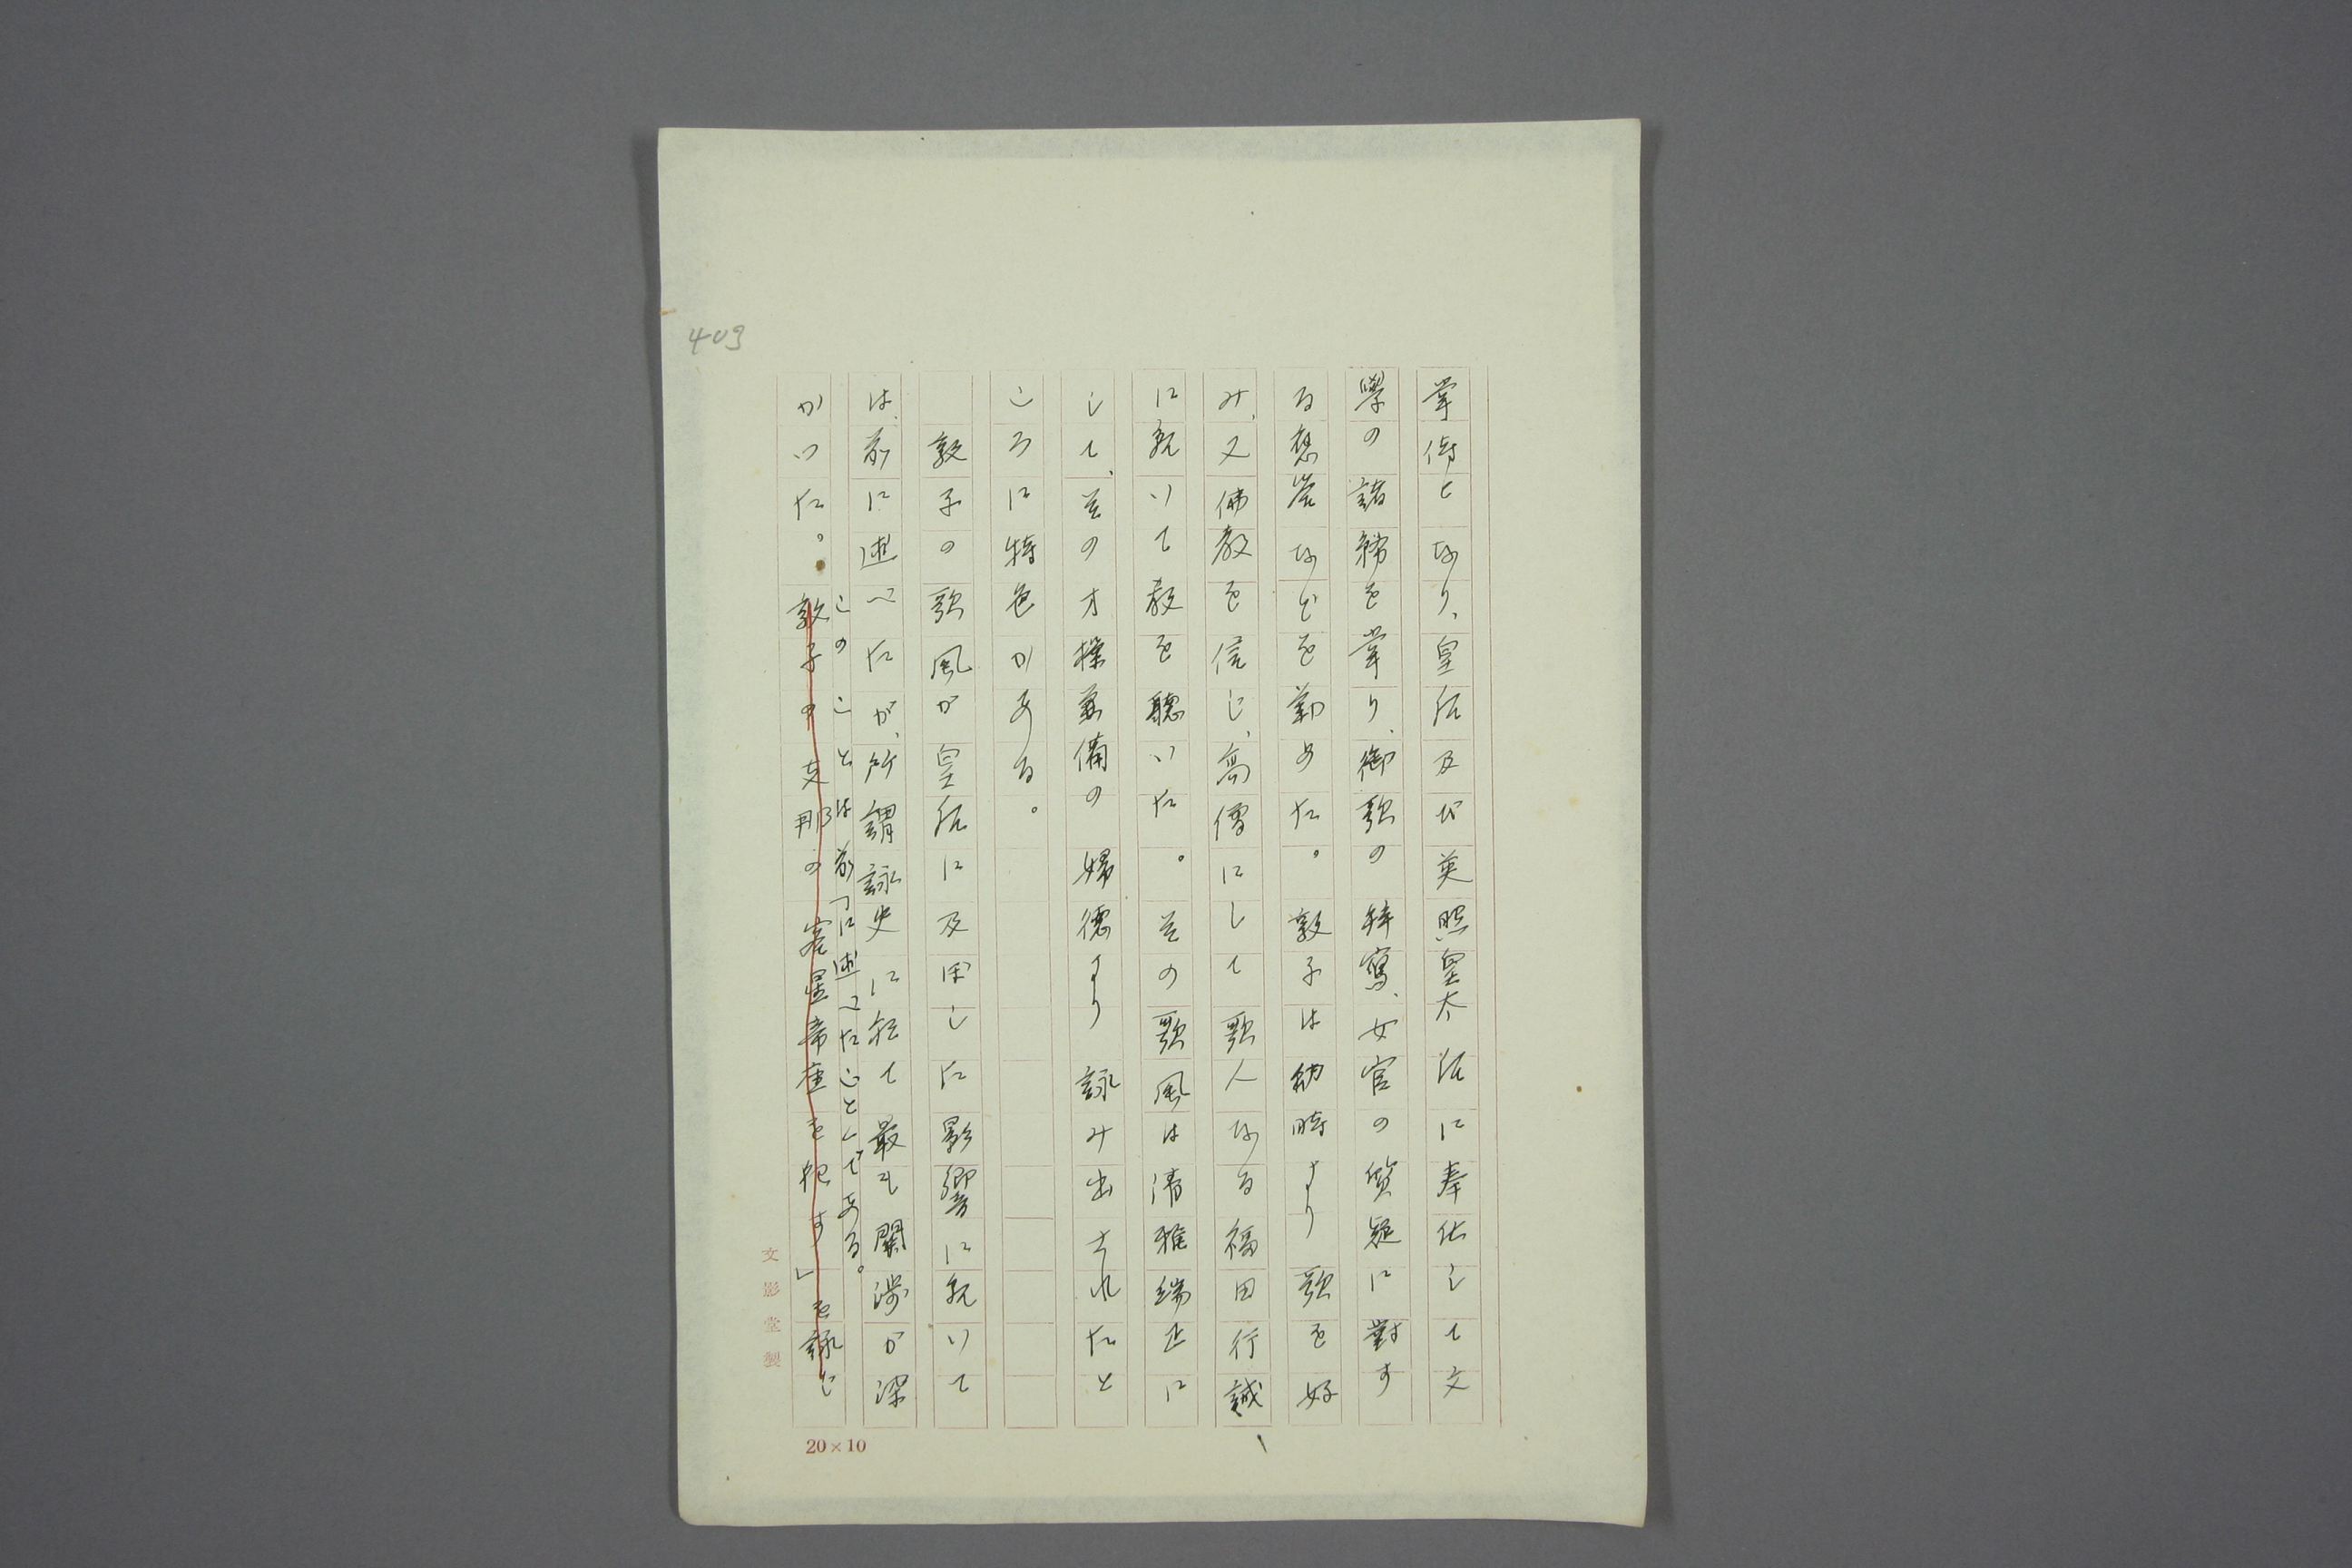 掌侍となり、皇后及び英照皇太后に奉仕して文
學の諸務を掌り、御歌の拜寫、女官の質疑に對す
る應答などを勤めた。敦子は幼時より歌を好
み、又佛教を信じ、高僧にして歌人なる福田行誡
に就いて教を聽いた。その歌風は清雅端正に
して、その才操兼備の婦德より詠み出されたと
ころに特色がある。
敦子の歌風が皇后に及ぼした影響に就いて
は、前に述べたが、所謂詠史に於て最も關渉が深
かつた。
このことは前に述べたことである。
敦子の支那の「客星帝座を犯す」を詠じ
403
20×10
文影堂製